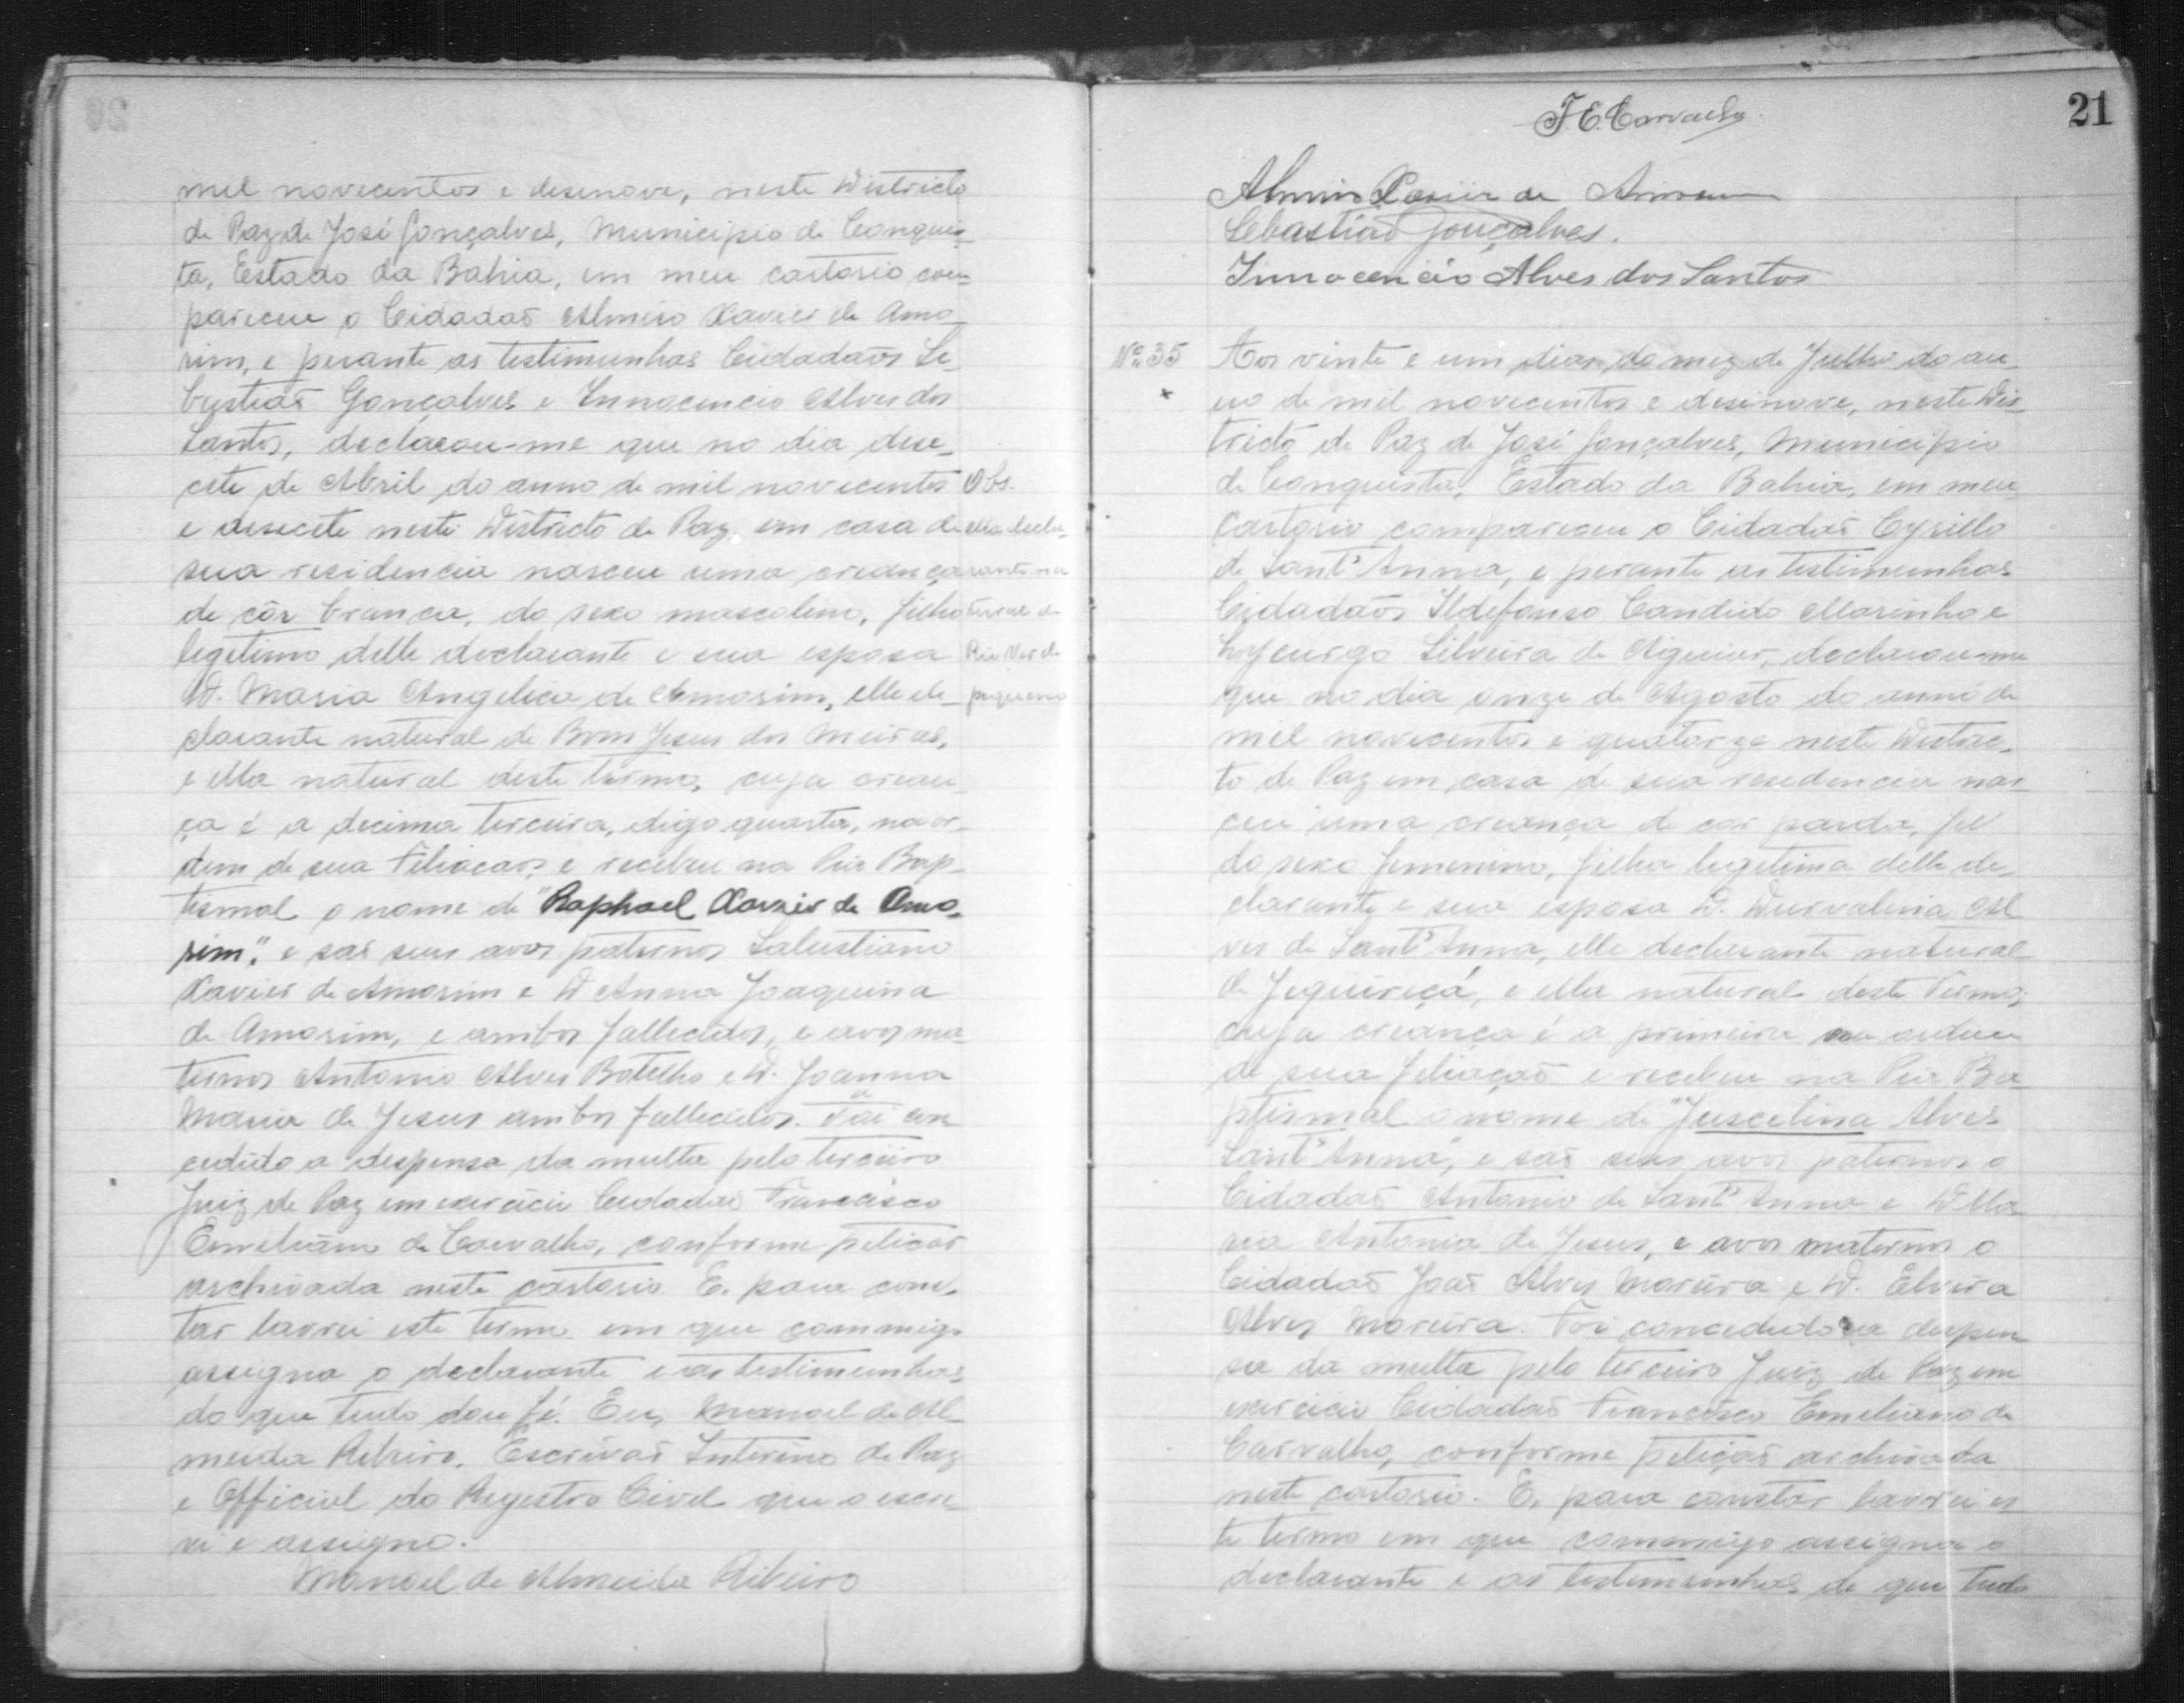 mil novecentos e desenove, neste Districto
de Paz de José Gonçalves, Municipio de Conquis-
ta, Estado da Bahia, em meu cartorio com-
pareceu o Cidadaõ Almiro Xavier de Amo-
rim, e perante as testimunhas Cidadaõs Se-
bastiaõ Gonçalves e Innocencio Alves dos
Santos, declarou-me que no dia dese-
cete de Abril do anno de mil novecentos
e desecete neste Districto de Paz em casa de
sua residencia nasceu uma creança
de côr branca, do sexo mascolino, filho
legitimo delle declarante e sua esposa
D. Maria Angelica de Amorim, elle de-
clarante natural de Bom Jesus dos Meiras,
e ella natural deste termo, cuja crean-
ça é a decima terceira, digo quarta, na or-
dem de sua Filiacaõ, e recebeu na Pia Bap-
tismal o nome de "Raphael Xavier de Amo-
rim". e saõ seus avos paternos Salustiano
Xavier de Amorim e D Anna Joaquina
de Amorim, e ambos fallecidos, e avos ma-
ternos Antonio Alves Botelho e D. Joanna
Maria de Jesus ambos fallecidos. Foi con
cedido a despensa da multa pelo terceiro
Juiz de Paz em exercicio Cidadaõ Francisco
Emeliano de Carvalho, conforme peticaõ
archivada neste cartorio. E, para cons-
tar lavrei este termo em que commigo
assigna o declarante e as testimunhas
do que tudo dou fé. Eu, Manoel de Al-
meida Ribeiro, Escrivaõ Interino de Paz
e Official do Registro Civel que o escre-
vi e assigno.
Manoel de Almeida Ribeiro
Obs.
ella decla-
rante na
tural de
Rio Verde
pequeno
F. E. Carvalho
21
Almiro Xavier de Amorim
Sebastiaõ Gonçalves.
Innocencio Alves dos Santos
Nº 35
Aos vinte e um dias do mez de Julho do an-
no de mil novecentos e desenove, neste Dis-
tricto de Paz de José Gonçalves, Municipio
de Conquista, Estado da Bahia, em meu
cartorio compareceu o Cidadaõ Cyrillo
de Sant'Anna, e perante as testimunhas
Cidadaõs Ildefonso Candido Marinho e
Lycurgo Silveira de Aguiar, declarou-me
que no dia onze de Agosto do anno de
mil novecentos e quatorze neste Distric-
to de Paz em casa de sua residencia nas
ceu uma creança de cor parda, fil
do sexo femenino, filha legitima delle de-
clarante e sua esposa D. Durvalina Al
ves de Sant'Anna, elle declarante natural
de Jequiriçá, e ella natural deste Termo,
cuja creança é a primeira na ordem
de sua filiaçaõ e recebeu na Pia Ba
ptismal o nome de "Juscelina Alves
Sant'Anna", e saõ seus avos paternos o
Cidadaõ Antonio de Sant'Anna e D Ma
ria Antonia de Jesus, e avos maternos o
Cidadaõ Joaõ Alves Moreira e D. Elvira
Alves Moreira. Foi concedido a despen
sa da multa pelo terceiro Juiz de Paz em
exercicio Cidadaõ Francisco Emeliano de
Carvalho, conforme petiçaõ archivada
neste cartorio. E, para constar lavrei es
te termo em que commigo assigna o
declarante e as testimunhas do que tudo